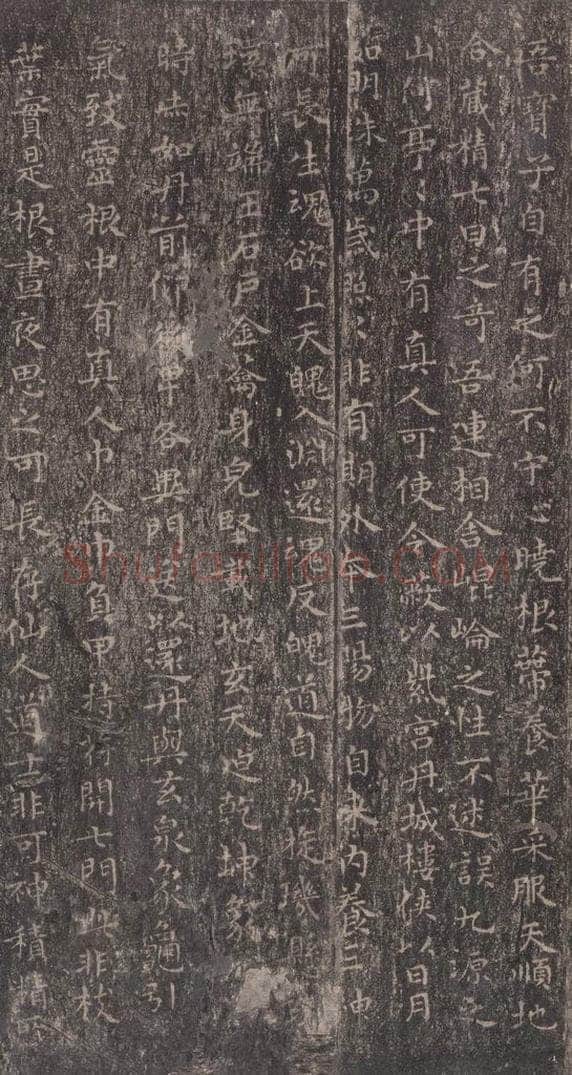 寶子自有之何不守心曉根蔕養華采服天順地
合藏精七日之奇吾連相舍崐崘之性不迷誤九源之
山何亭〻中有真人可使令蔽以紫宮丹城樓俠以日月
如明珠萬歲照〻非有期外本三陽物自來内養三神
可長生魂欲上天魄入淵還魂反魄道自然旋璣懸
環無端玉石戶金籥身完堅載地玄天迫乾坤象
時赤如丹前仰後卑各異門送以還丹與玄泉象龜引
氣致靈根中有真人巾金巾負甲持符開七門此非枝
葉實是根晝夜思之可長存仙人道士非可神積精所
Shufaziliao.COM